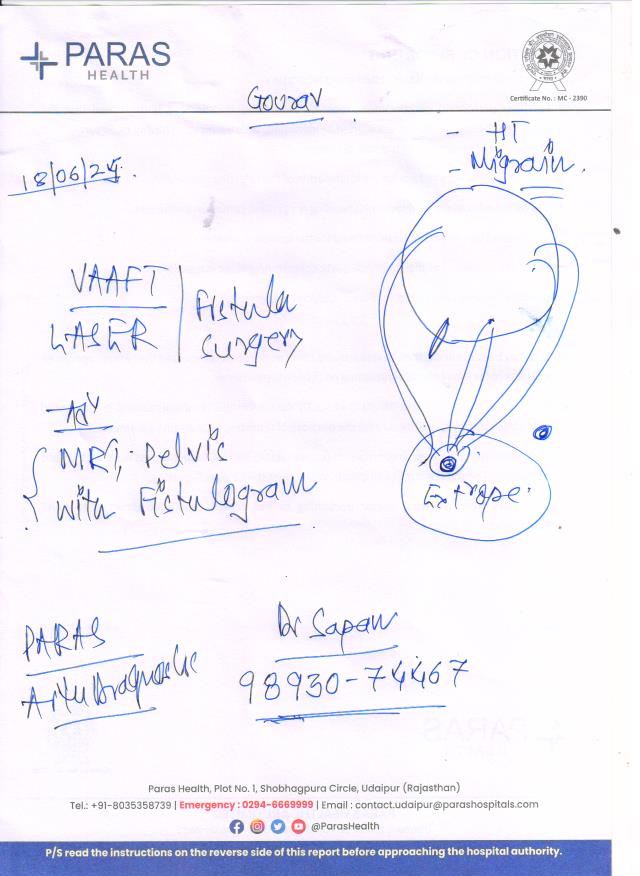 PARAS
HEALTH
Certificate No. : MC - 2390
Gourav
- HT
- Migrain.
18/06/25.
VAAFT
LASER
Fistula
surgery
Adv
MRI, Pelvis
with Fistulogram
PARAS
Dr Sapan
98930-74467
Paras Health, Plot No. 1, Shobhagpura Circle, Udaipur (Rajasthan)
Tel.: +91-8035358739 | Emergency : 0294-6669999 | Email : contact.udaipur@parashospitals.com
@ParasHealth
P/S read the instructions on the reverse side of this report before approaching the hospital authority.